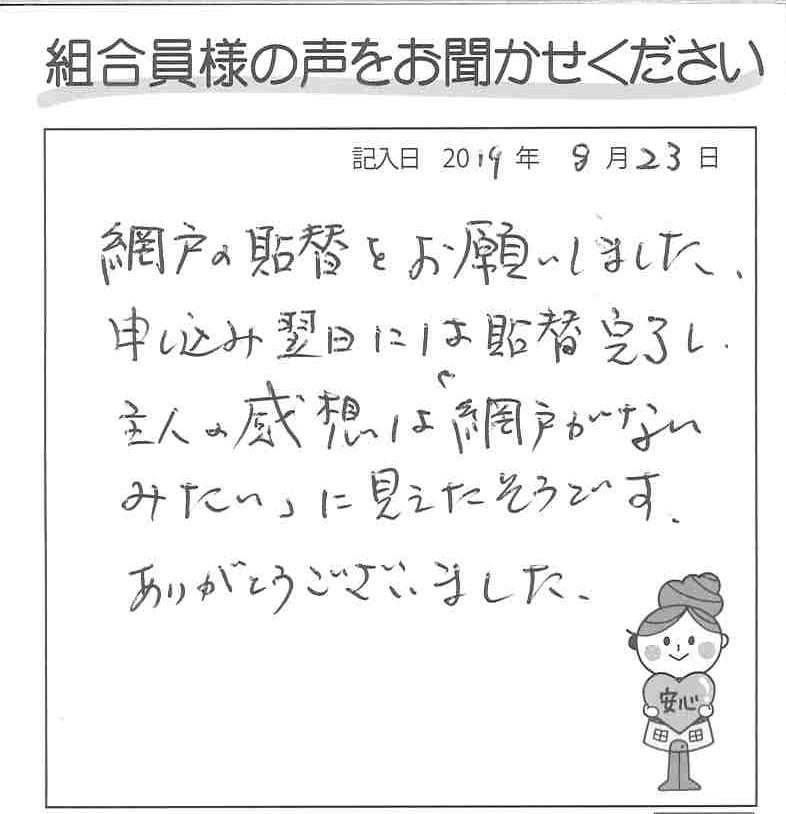 組合員様の声をお聞かせください
記入日 2019年 8月23日
網戸の貼替をお願いしました、
申し込み翌日には貼替完了し、
主人の感想は「網戸がない
みたい」に見えたそうです、
ありがとうございました、
安心